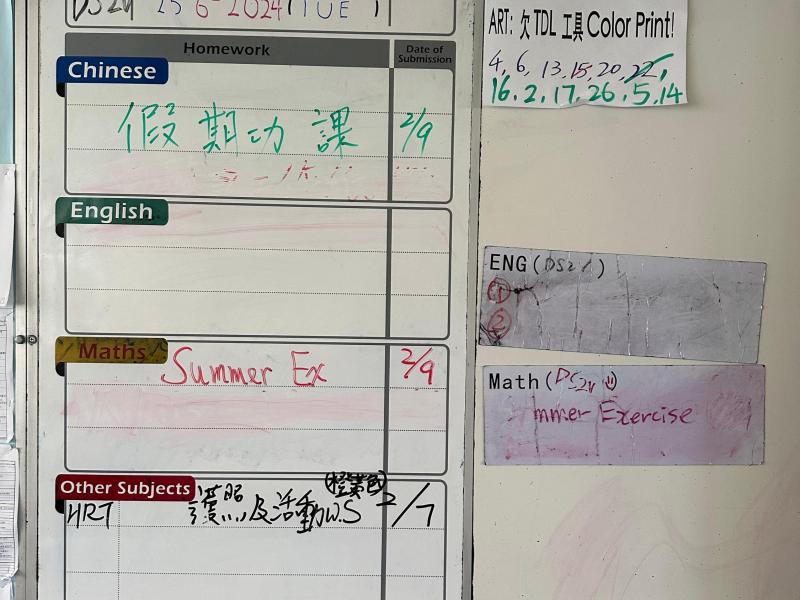 25-6-2024 (TUE)
Homework
Date of Submission
Chinese
假期功課 2/9
English
Maths
Summer Ex 2/9
Other Subjects
(橙黃色)
HRT 護照及活動W.S 2/7
ART: 欠 TDL 工具 Color Print!
4, 6, 13, 15, 20, 22,
16, 2, 17, 26, 5, 14
ENG (DS2
①
②
Math (DS2
mmer Exercise